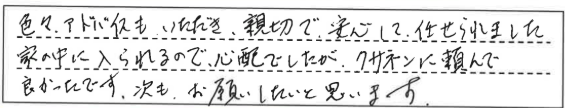 色々、アドバイスも、いただき、親切で、安心して、任せられました
家の中に入られるので、心配でしたが、クサネンに頼んで
良かったです、次も、お願いしたいと思います。